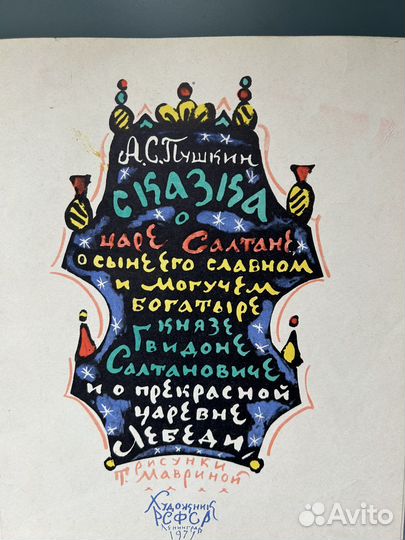 А.С. Пушкин
СКАЗКА
О
ЦАРЕ САЛТАНЕ,
О СЫНЕ ЕГО СЛАВНОМ
И МОГУЧЕМ
БОГАТЫРЕ
КНЯЗЕ
ГВИДОНЕ
САЛТАНОВИЧЕ
И О ПРЕКРАСНОЙ
ЦАРЕВНЕ
ЛЕБЕДИ
РИСУНКИ
Т. МАВРИНОЙ
ХУДОЖНИК
РСФСР
ЛЕНИНГРАД
1977
Avito